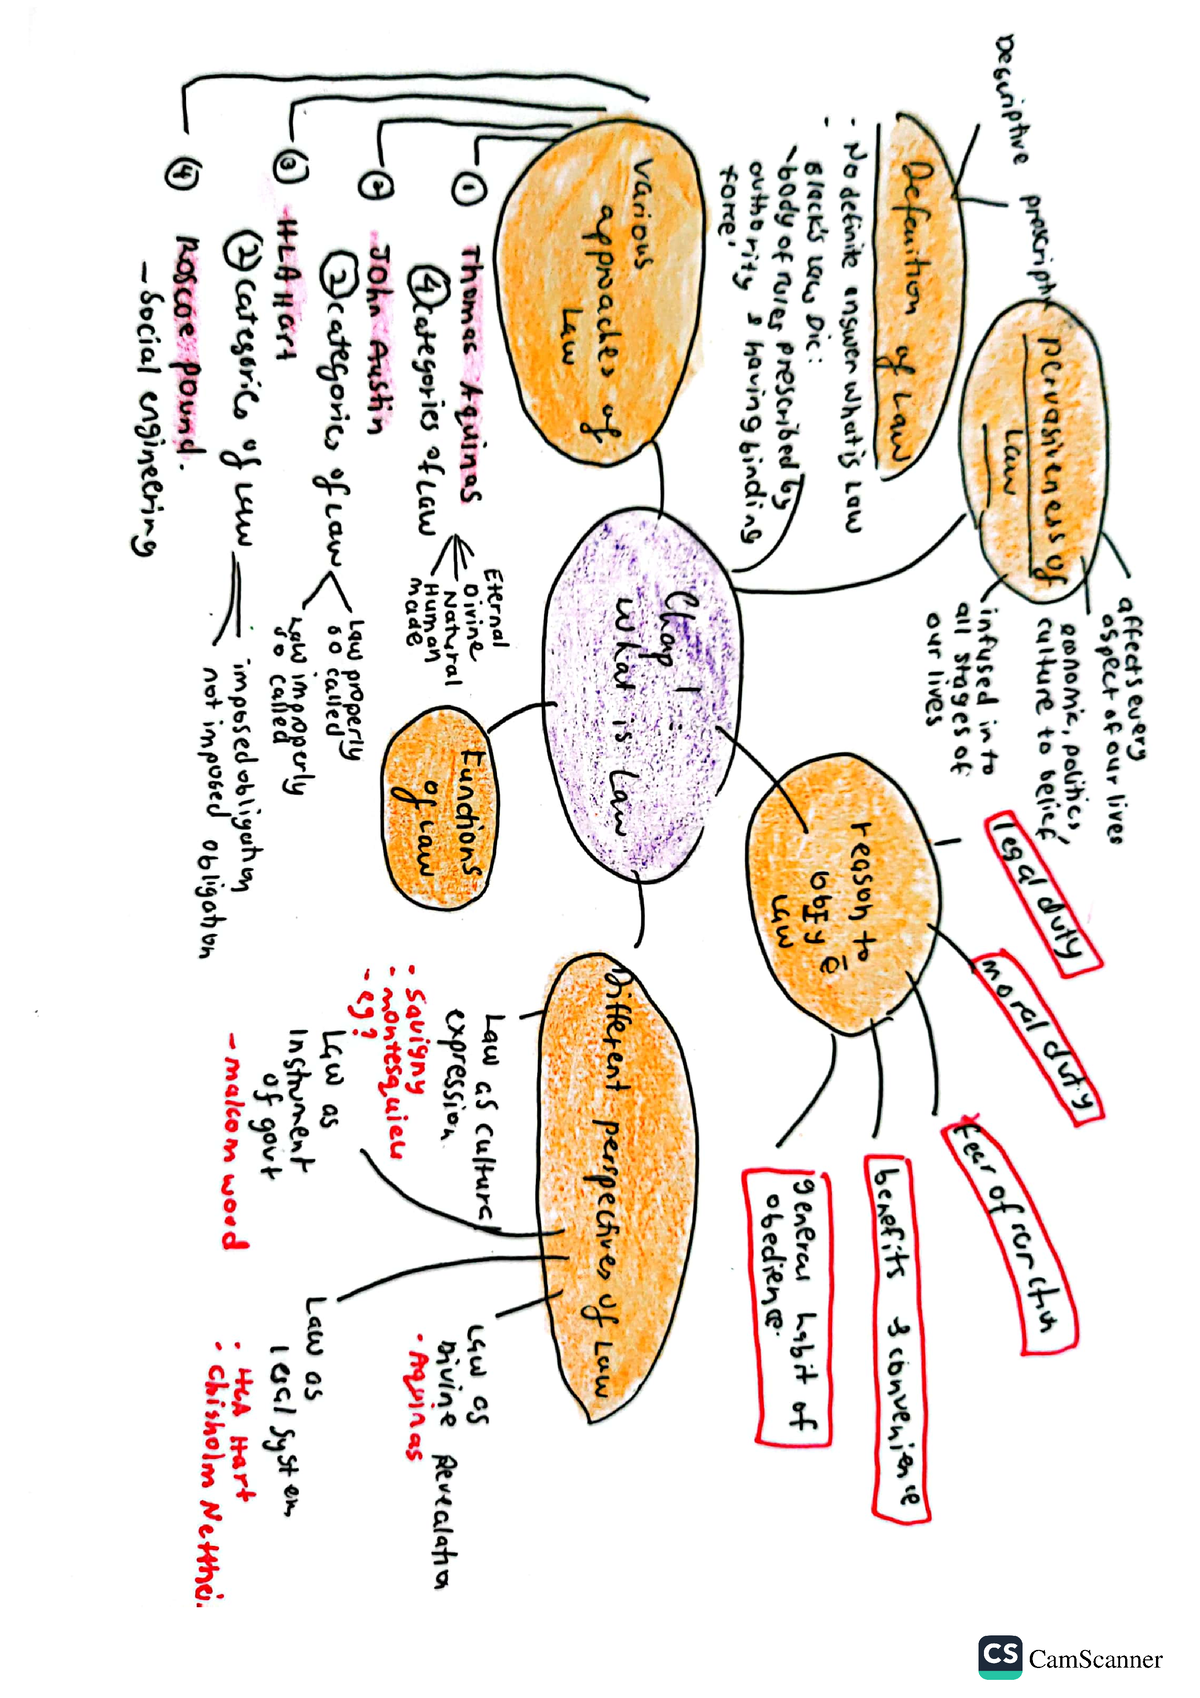 Descriptive
prescriptive
Defenition of Law
- No definite answer what is Law
- Black's Law Dic:
~body of rules prescribed by
authority & having binding
force'
pervasiveness of
Law
affects every
aspect of our lives
economic, politics,
culture to belief
infused into
all stages of
our lives
Various
approaches of
Law
① Thomas Aquinas
④ categories of Law
Eternal
Divine
Natural
Human
made
② - John Austin
② categories of Law
Law properly
so called
Law improperly
so called
③ - HLA Hart
② categories of Law
imposed obligation
not imposed obligation
④ Roscoe pound.
- Social engineering
Chap 1 :
what is Law
Functions
of Law
reason to
obey
Law
legal duty
moral duty
fear of
benefits & convenience
general habit of
obedience.
Different perspectives of Law
Law as cultural
expression
- Savigny
- montesquieu
- eg?
Law as
Instrument
of govt
- malcom wood
Law as
legal system
- HLA Hart
- Chisholm
Law as
Divine Revealation
- Aquinas
CS CamScanner